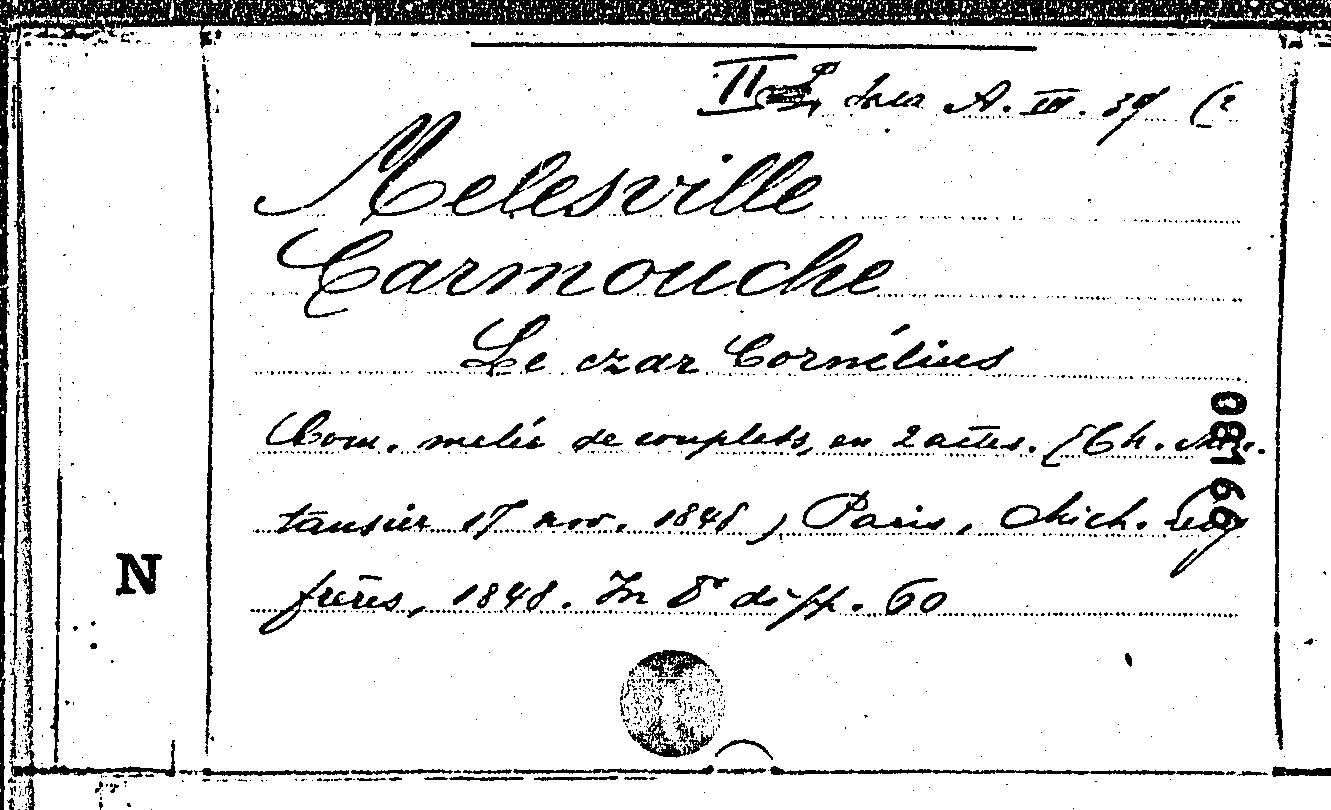 II A. III. 39 (2
Melesville
Carmouche
Le czar Cornélius
Com. mêlée de couplets, en 2 actes. (Th. Mon.
tansier 17 nov. 1848) Paris, Mich. Levy
frères, 1848. In 8° de pp. 60
08166
N